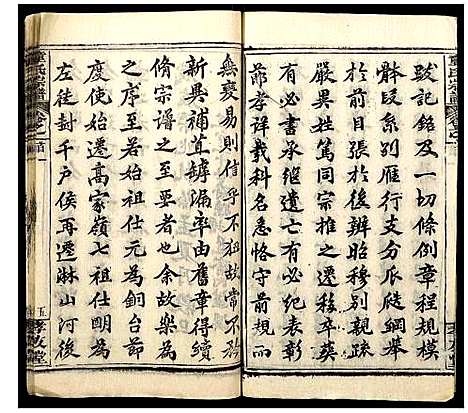 跋記銘及一切條例章程規模
骵段系別雁行支分瓜瓞綱舉
於前目張於後辨昭穆別親疎
嚴異姓篤同宗推之遷移卒葬
有必書承繼遺亡有必紀表彰
節孝詳載科名恳恪守前規
無變易則信乎不祖故常不矜
新異補苴罅漏率由舊章得續
脩宗譜之至要者也余故樂為
之序至若始祖仕元為銅台節
度使始遷高家嶺七祖仕明為
左徒封千戶侯再遷牀山河後
童氏宗譜
卷之首
孝友堂